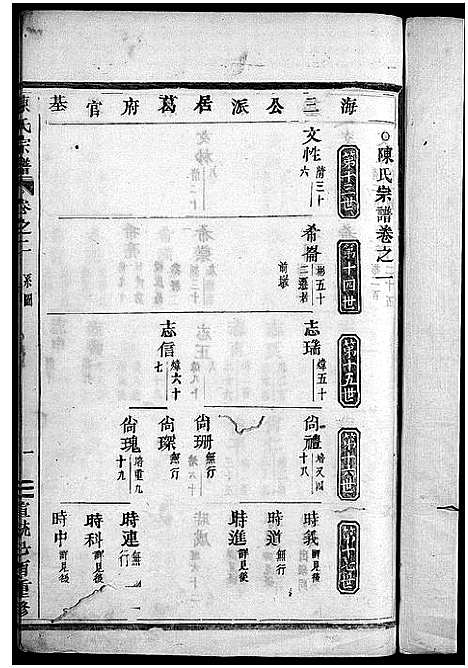 陳氏宗譜卷之二
海三公派居葛府官基
第十三世
文性 蒨三十六
第十四世
希崙 彬五十二遷者前墩
第十五世
志瑞 煒五十
志信 煒六十七
尙禮 培又四十八
尙珊 無行
尙琛 無行
尙瑰 培重九十九
第十七世
時義 詳見後
時道 無行
時進 詳見後
時連 無行
時科 詳見後
時中 詳見後
陳氏宗譜
卷之二
系圖
一